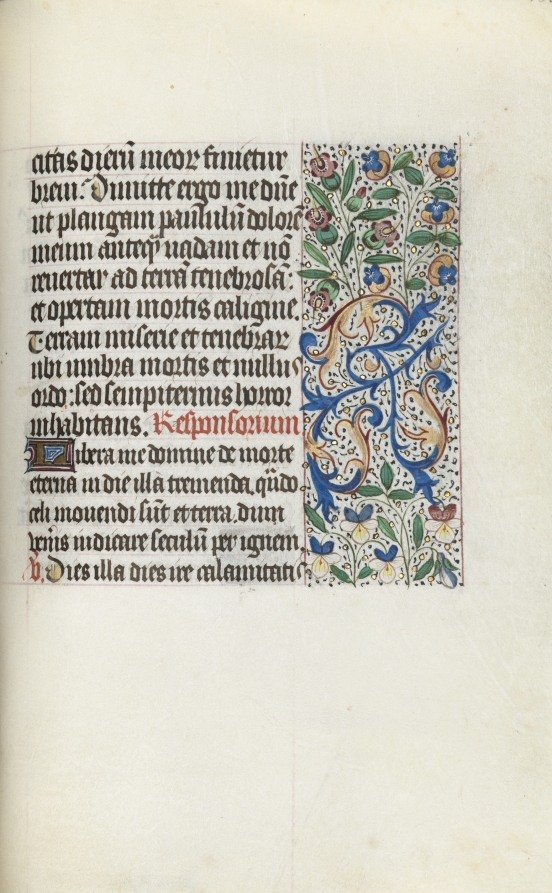 citas dierū meoꝝ finietur
breui. Dimitte ergo me dn̄e
ut plangam paululū dolorē
meum anteq̄ uadam et nō
reuertar ad terrā tenebrosā:
et opertam mortis caligine.
Terram miserie et tenebrar
ubi umbra mortis et nullus
ordo: sed sempiternus horror
inhabitans. Responsorium
Libera me domine de morte
eterna in die illa tremenda. qn̄do
celi mouendi sūt et terra. dum
veneris iudicare seculū per ignem.
V. Dies illa dies ire calamitatis